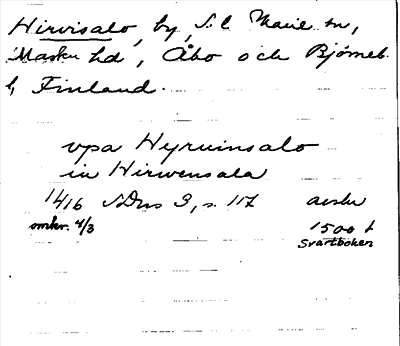 Hirvisalo, by, S:t Marie sn,
Masku hd, Åbo och Björneb.
l, Finland.
vpa Hyruinsalo
in Hirwensala
14/16 SDns 3, s. 117 avskr
omkr. 4/3 1500 t
Svartboken